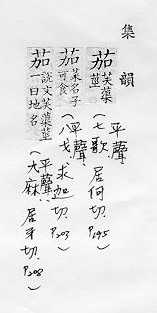 集韻
茄 芙蕖
莖
平聲.
(七歌.居何切.P195)
茄 菜名子
可食
平聲
(八戈.求迦切.P203)
茄 說文芙蕖莖
一曰地名
平聲.
(麻.居牙切.P208)